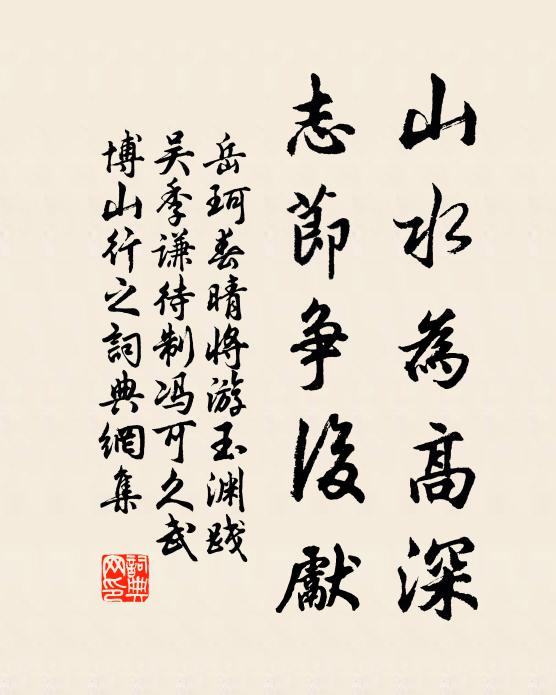 山水為高深
志節爭後獻
岳珂春晴將游玉渊踐
吴季謙待制馮可久武
博山行之詞典網集
詞典
网印